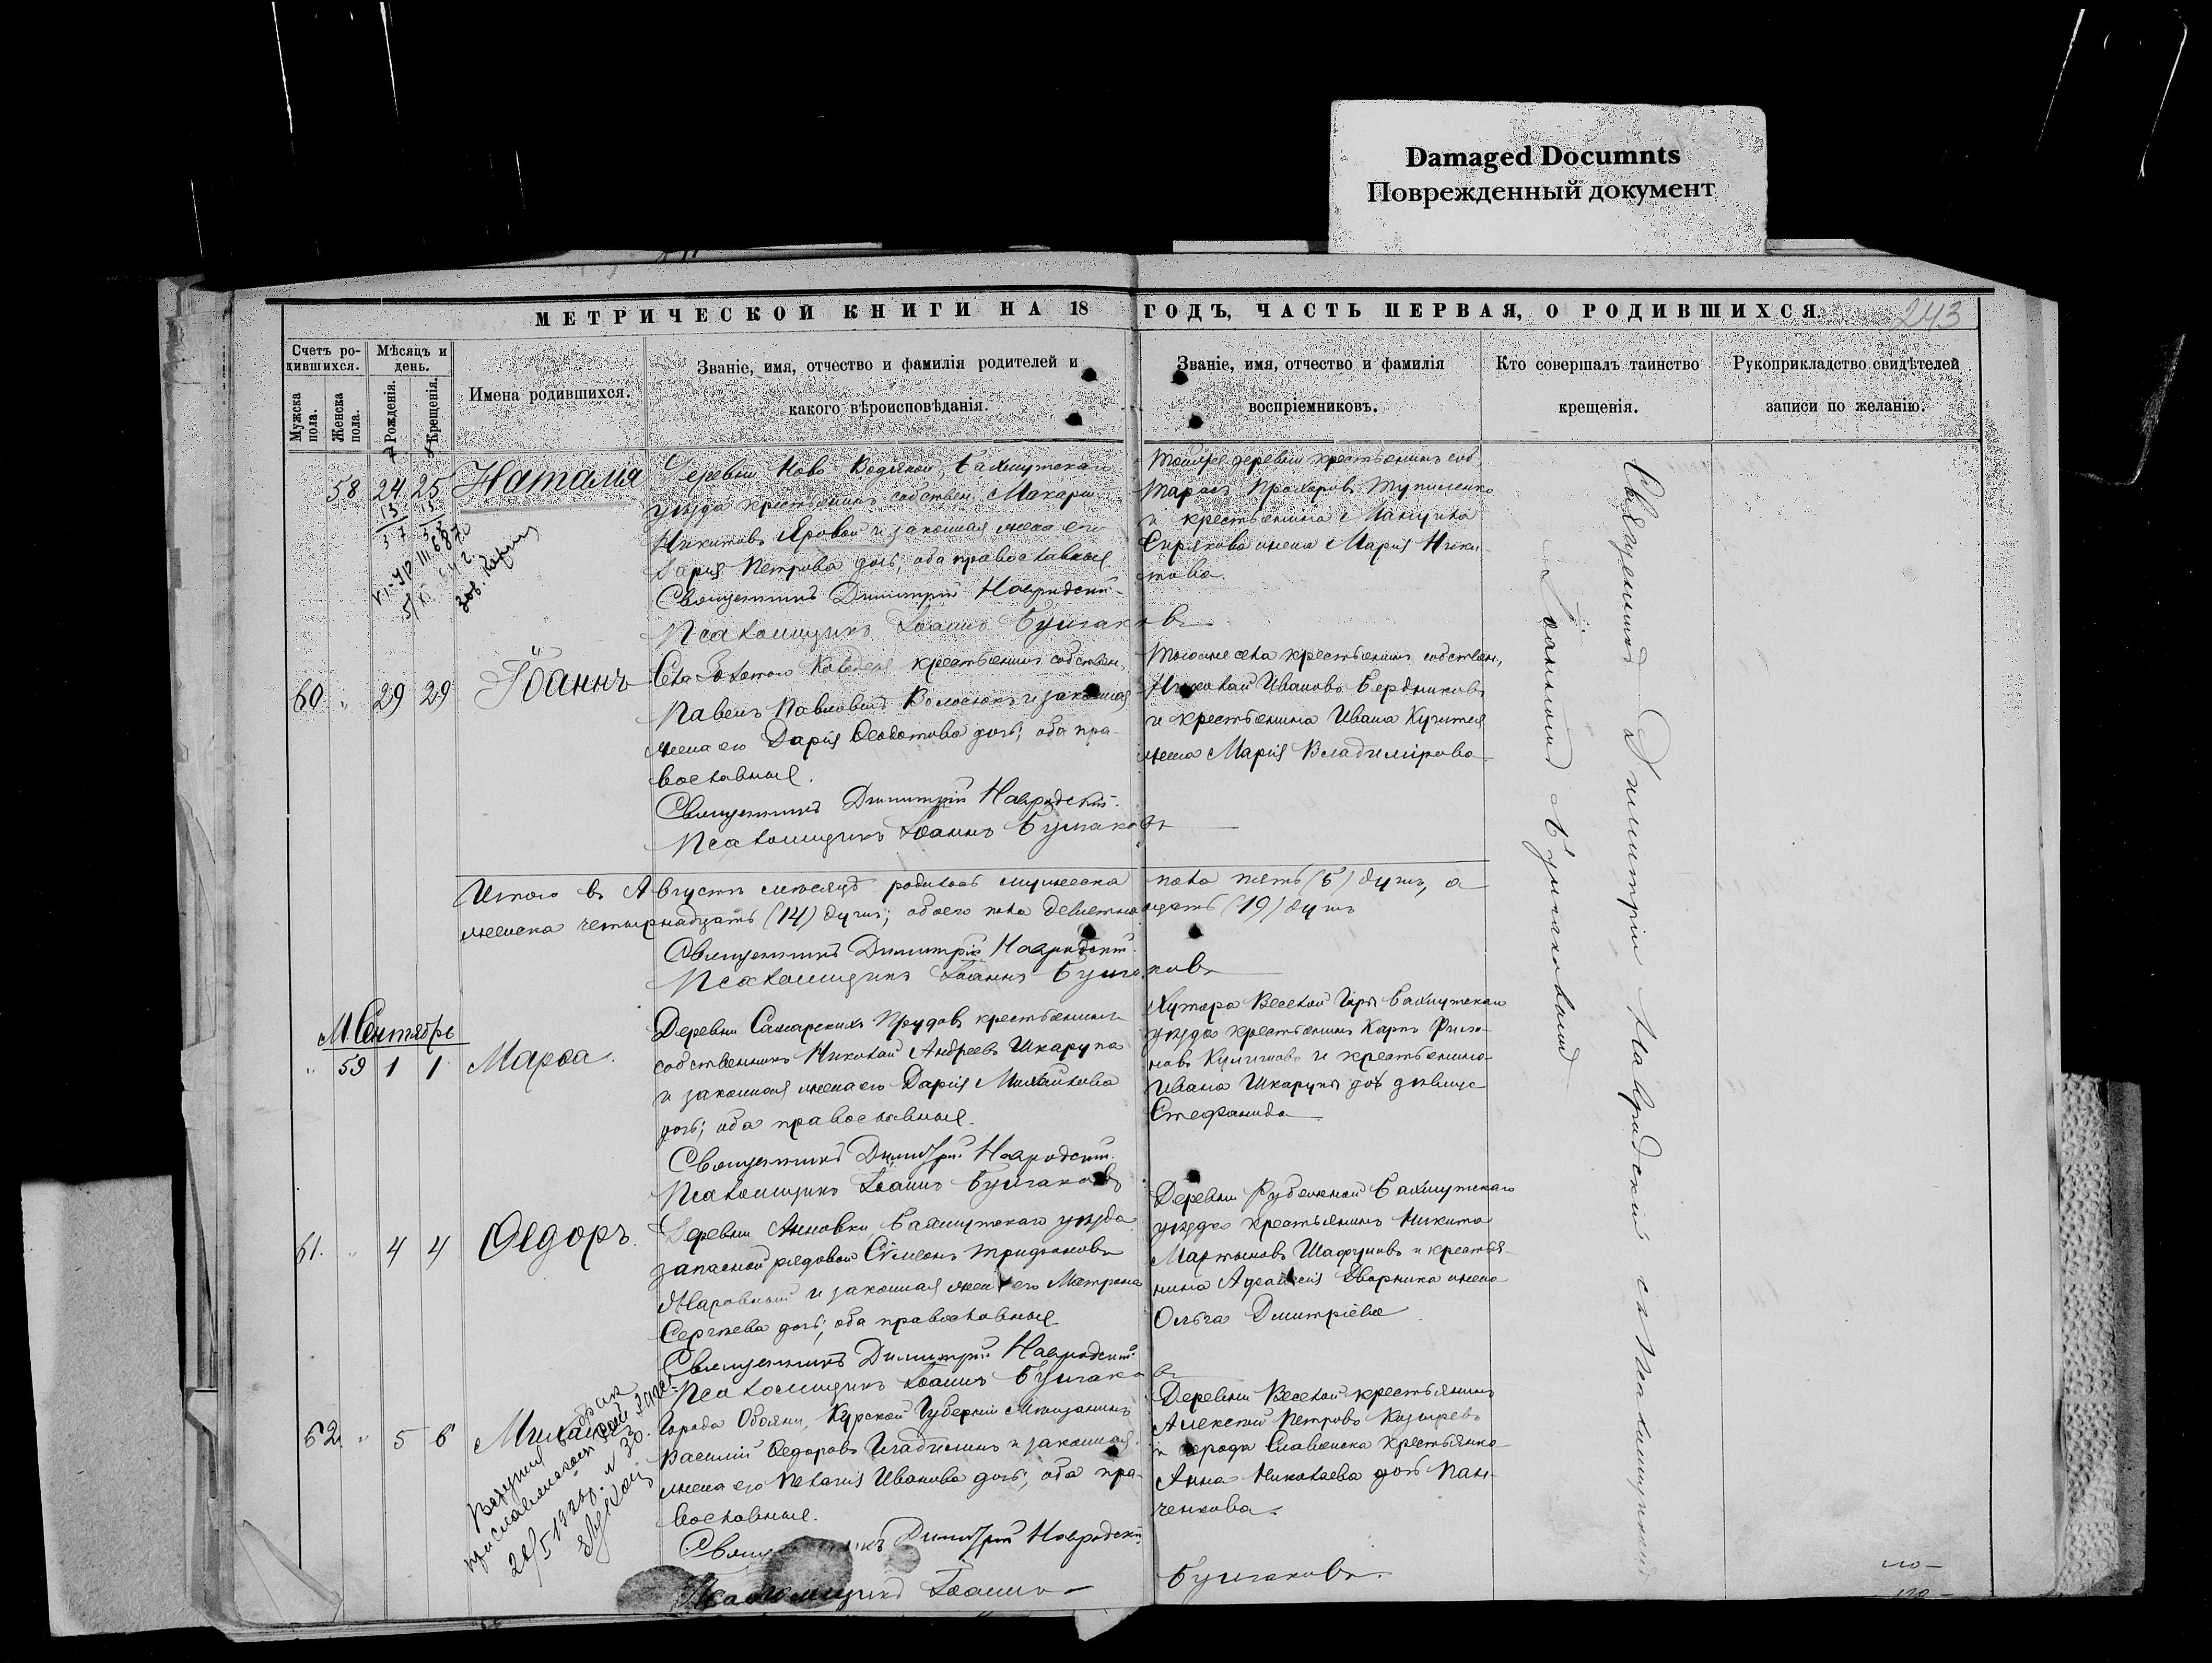 Damaged Documnts
Поврежденный документ
МЕТРИЧЕСКОЙ КНИГИ НА 18 ГОДЪ, ЧАСТЬ ПЕРВАЯ, О РОДИВШИХСЯ.
243
Счетъ родившихся.
Мужска пола.
Женска пола.
Мѣсяцъ и день.
Рожденія.
Крещенія.
Имена родившихся.
Званіе, имя, отчество и фамилія родителей и
какого вѣроисповѣданія.
Званіе, имя, отчество и фамилія
воспріемниковъ.
Кто совершалъ таинство
крещенія.
Рукоприкладство свидѣтелей
записи по желанію.
58 24 25 Наталія
Деревни Ново Водяной, Бахмутскаго
уѣзда крестьянинъ собствен. Макарій
Никитовъ Яровой и законная жена его
Дарія Петрова дочь, оба православные
Священникъ Димитрій Навродскій
Псаломщикъ Іоаннъ Булгаковъ
Тойже деревни крестьянинъ соб.
Тарасъ Прохоровъ Тупиленко
и крестьянина
жена Марія Никитова.
60 " 29 29 Іоаннъ
Села Золотого Колодезя крестьянинъ собствен.
Павелъ Павловъ и законная
жена его Дарія Ѳеодотова дочь; оба пра-
вославные.
Священникъ Димитрій Навродскій.
Псаломщикъ Іоаннъ Булгаковъ
Тогоже села крестьянинъ собствен.
Николай Ивановъ Бердниковъ
и крестьянина Ивана
жена Марія Владимірова
Итого въ Августѣ мѣсяцѣ родилось мужеска пола пять (5) душъ, а
женска четырнадцать (14) душъ; обоего пола девятнадцать (19) душъ
Священникъ Димитрій Навродскій.
Псаломщикъ Іоаннъ Булгаковъ
М. Сентябрь
" 59 1 1 Марѳа.
Деревни Самарскихъ Прудовъ крестьянинъ
собственникъ Николай Андреевъ Шкарупа
и законная жена его Дарія Михайлова
дочь; оба православные.
Священникъ Димитрій Навродскій.
Псаломщикъ Іоаннъ Булгаковъ
Хутора Веселой Горы Бахмутскаго
уѣзда крестьянинъ Карпъ
и крестьянина
Ивана Шкарупы дочь дѣвица
Стефанида
61. " 4 4 Ѳедоръ.
Деревни Анновки Бахмутскаго уѣзда
запасной рядовой Сѵмеонъ
и законная жена его Матрона
Сергѣева дочь; оба православные
Священникъ Димитрій Навродскій
Псаломщикъ Іоаннъ Булгаковъ
Деревни Рубежной Бахмутскаго
уѣзда крестьянинъ Никита
Мартыновъ и крестья-
нина жена
Ольга Димитріева
62. " 5 6 Михаилъ
Города Обояни, Курской Губерніи мѣщанинъ
Василій Ѳедоровъ и законная
жена его Пелагія Иванова дочь; оба пра-
вославные.
Димитрій Навродскій
Псаломщикъ Іоаннъ Булгаковъ.
Деревни Веселой крестьянинъ
Алексѣй Петровъ Козыревъ
и города Славянска крестьянка
Анна Николаева дочь Пан-
ченкова.
Священникъ Димитрій Навродскій съ Псаломщикомъ
Іоанномъ Булгаковымъ